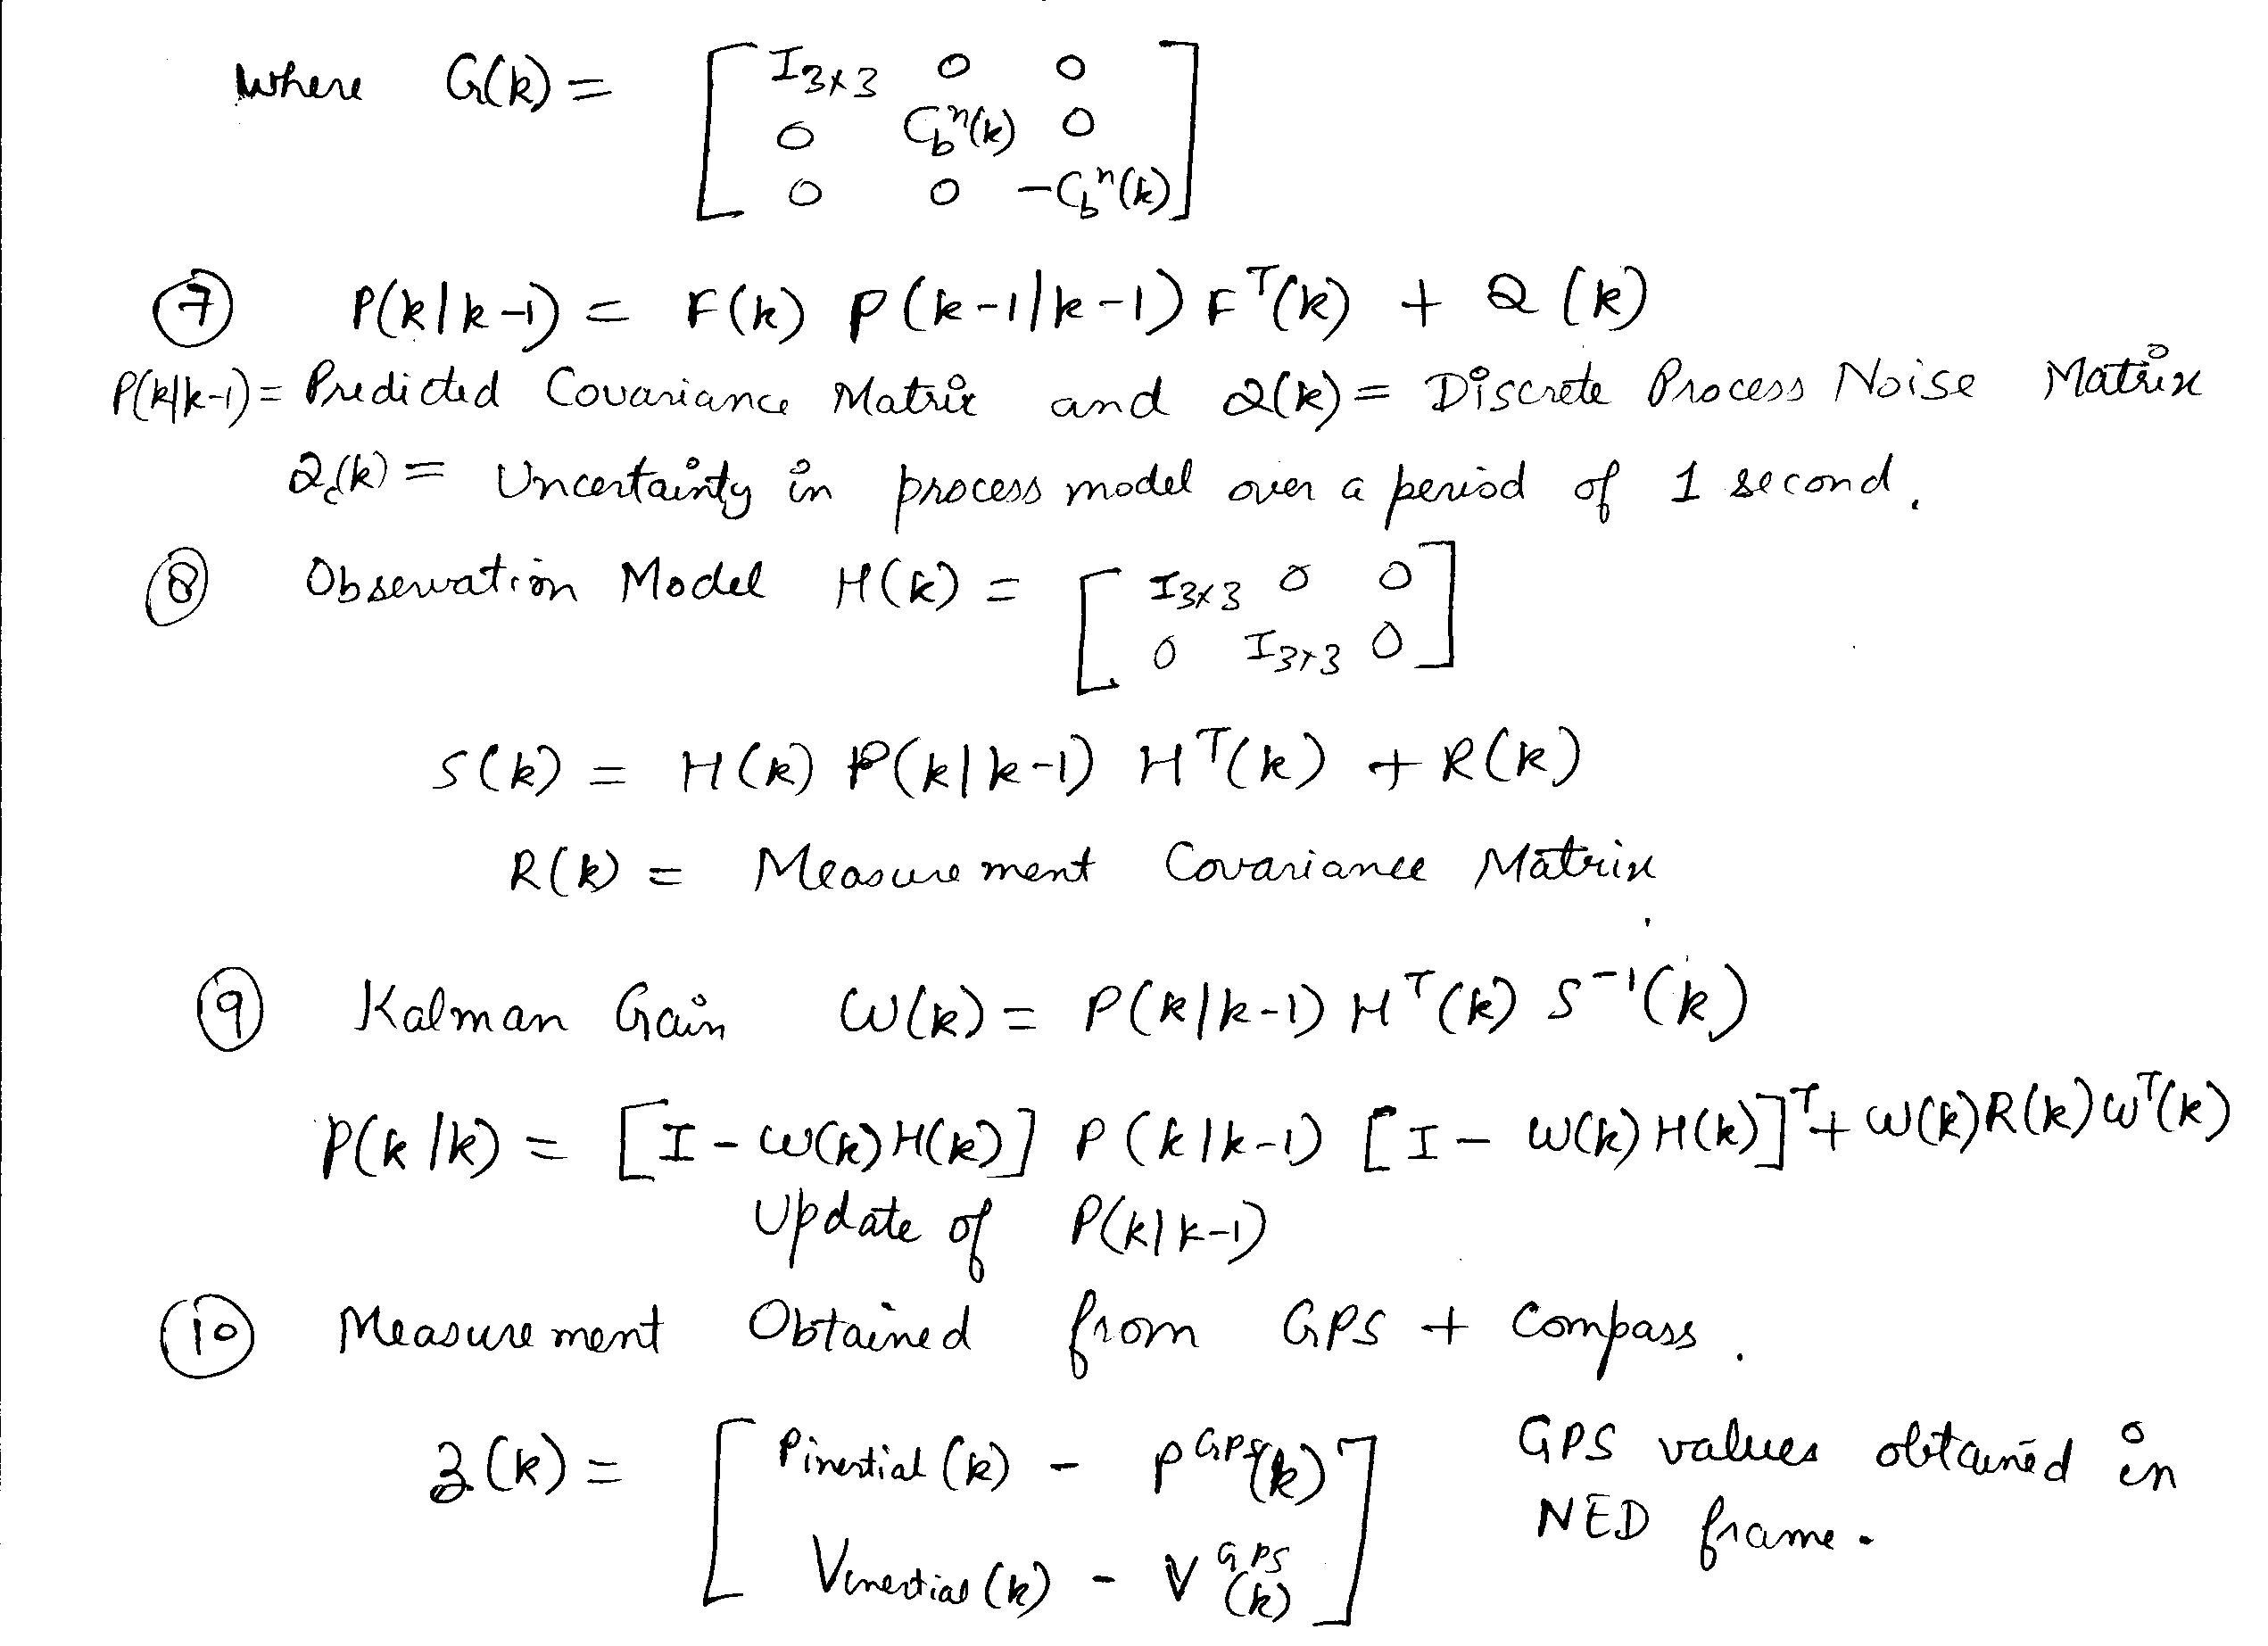 where G(k) = [ I3×3 0 0
0 C_b^n(k) 0
0 0 -C_b^n(k) ]
(7) P(k|k-1) = F(k) P(k-1|k-1) F^T(k) + Q(k)
P(k|k-1) = Predicted Covariance Matrix and Q(k) = Discrete Process Noise Matrix
Q_c(k) = Uncertainty in process model over a period of 1 second.
(8) Observation Model H(k) = [ I3×3 0 0
0 I3×3 0 ]
S(k) = H(k) P(k|k-1) H^T(k) + R(k)
R(k) = Measurement Covariance Matrix
(9) Kalman Gain W(k) = P(k|k-1) H^T(k) S^-1(k)
P(k|k) = [I - W(k)H(k)] P(k|k-1) [I - W(k)H(k)]^T + W(k)R(k)W^T(k)
Update of P(k|k-1)
(10) Measurement Obtained from GPS + Compass.
z(k) = [ Pinertial(k) - P^GPS(k)
Vinertial(k) - V^GPS(k) ]
GPS values obtained in
NED frame.